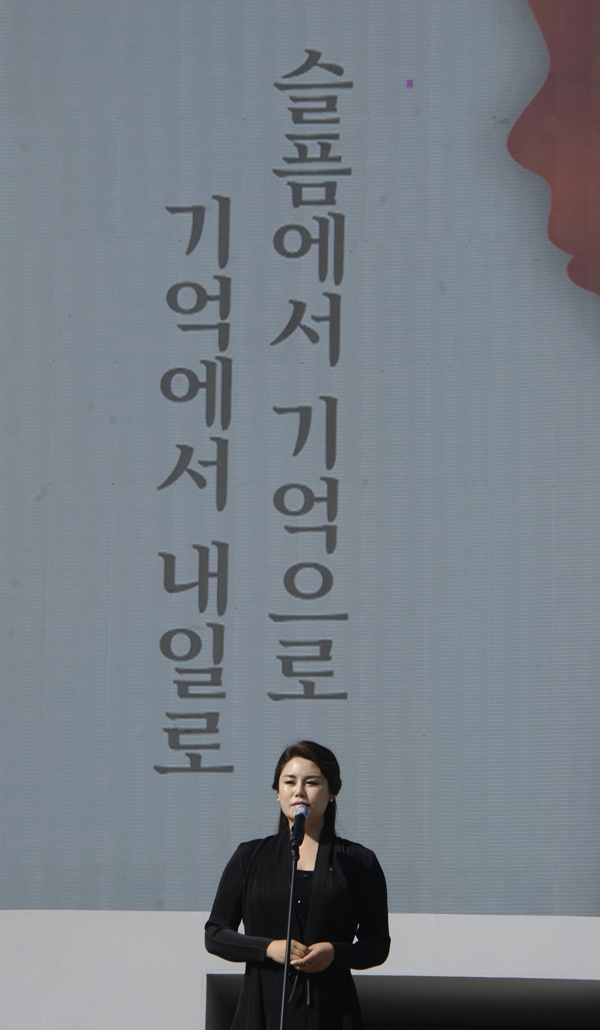 슬픔에서 기억으로
기억에서 내일로